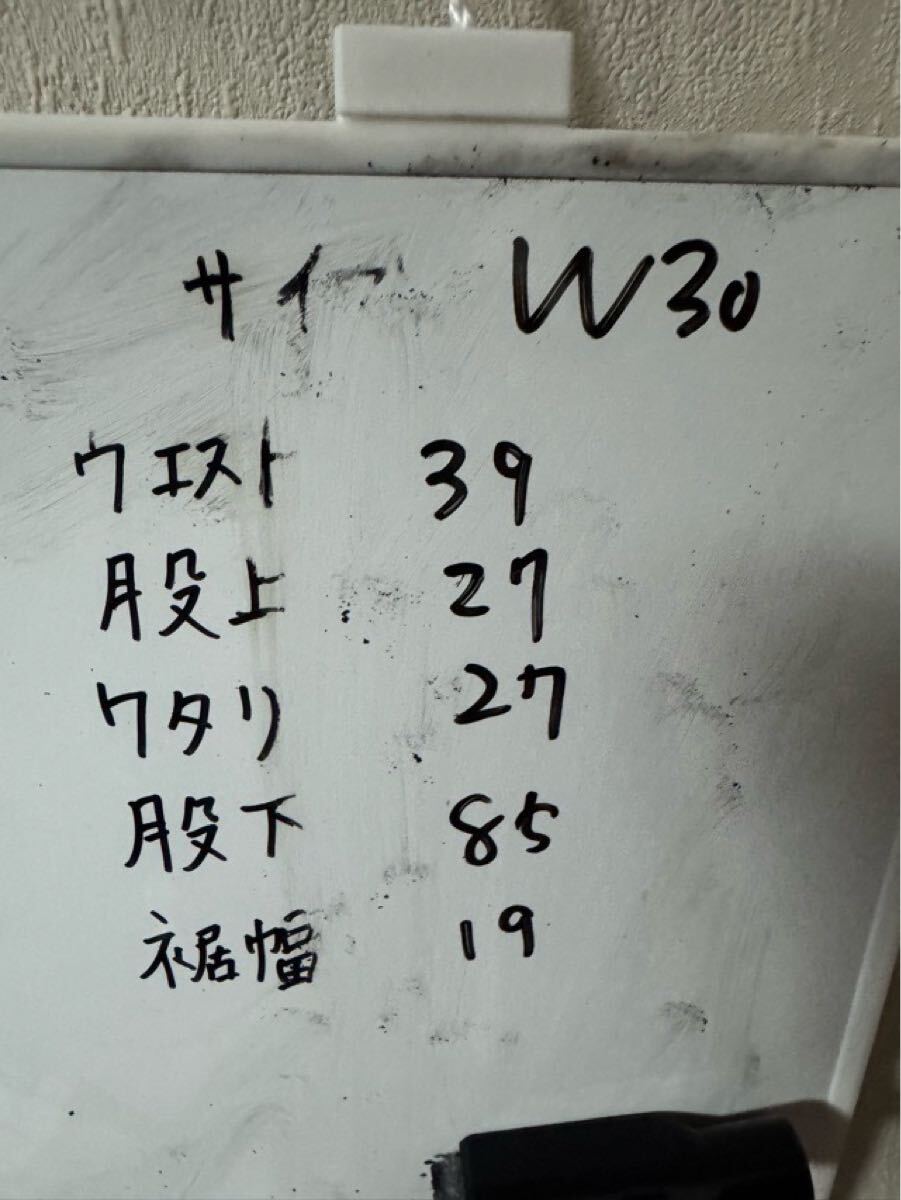 サイ W30
ウエスト 39
股上 27
ワタリ 27
股下 85
裾幅 19